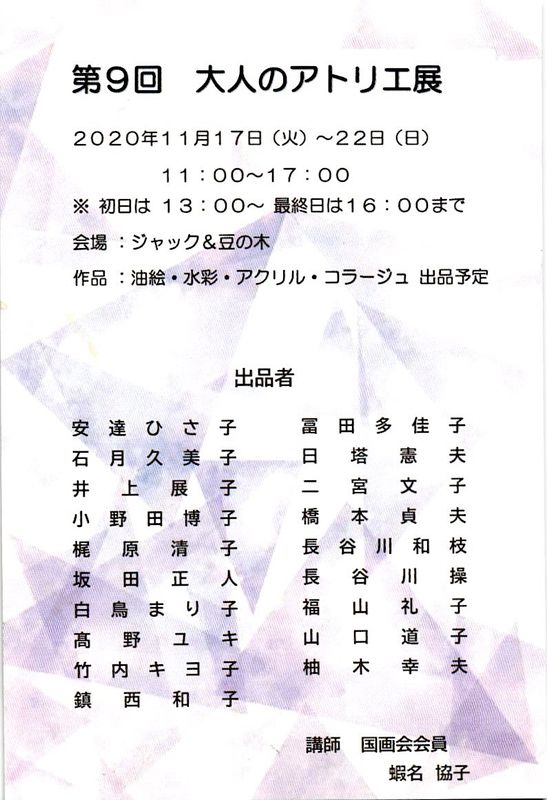 第９回　大人のアトリエ展
２０２０年１１月１７日（火）～２２日（日）
１１：００～１７：００
※ 初日は １３：００～ 最終日は１６：００まで
会場 ：ジャック＆豆の木
作品 ：油絵・水彩・アクリル・コラージュ 出品予定
出品者
安達ひさ子
石月久美子
井上展子
小野田博子
梶原清子
坂田正人
白鳥まり子
髙野ユキ
竹内キヨ子
鎮西和子
冨田多佳子
日塔憲夫
二宮文子
橋本貞夫
長谷川和枝
長谷川操
福山礼子
山口道子
柚木幸夫
講師　国画会会員
蝦名 協子